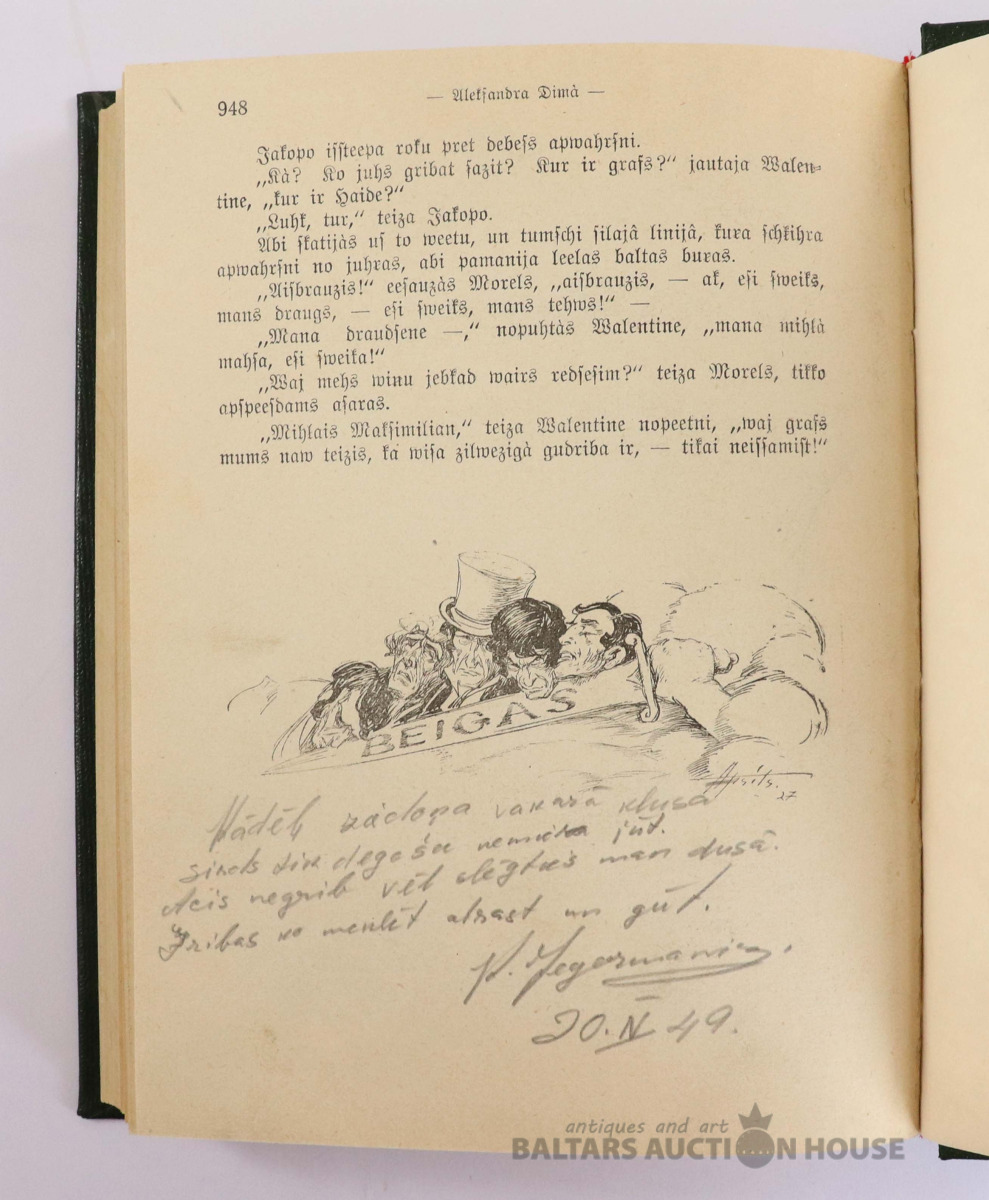 948
— Alekſandra Dimà —
Jakopo iſſteepa roku pret debeſs apwahrſni.
„Kà? Ko juhs gribat ſazit? Kur ir grafs?“ jautaja Walen-
tine, „kur ir Haide?“
„Luhk, tur,“ teiza Jakopo.
Abi ſkatijàs uſ to weetu, un tumſchi ſilajâ linijâ, kura ſchkihra
apwahrſni no juhras, abi pamanija leelas baltas buras.
„Aiſbrauzis!“ eeſauzàs Morels, „aiſbrauzis, — ak, eſi ſweiks,
mans draugs, — eſi ſweiks, mans tehws!“ —
„Mana draudſene —,“ nopuhtàs Walentine, „mana mihlà
mahſa, eſi ſweika!“
„Waj mehs winu jebkad wairs redſeſim?“ teiza Morels, tikko
apſpeeſdams aſaras.
„Mihlais Makſimilian,“ teiza Walentine nopeetni, „waj grafs
mums naw teizis, ka wiſa zilwezigà gudriba ir, — tikai neiſſamiſt!“
BEIGAS
27
Kādēļ vakarā klusā
sirds degošu nemiera jūt.
Acis negrib vēl slēgties man dusā.
Gribas ko meklēt atrast un gūt.
20. IV 49.
antiques and art
BALTARS AUCTION HOUSE